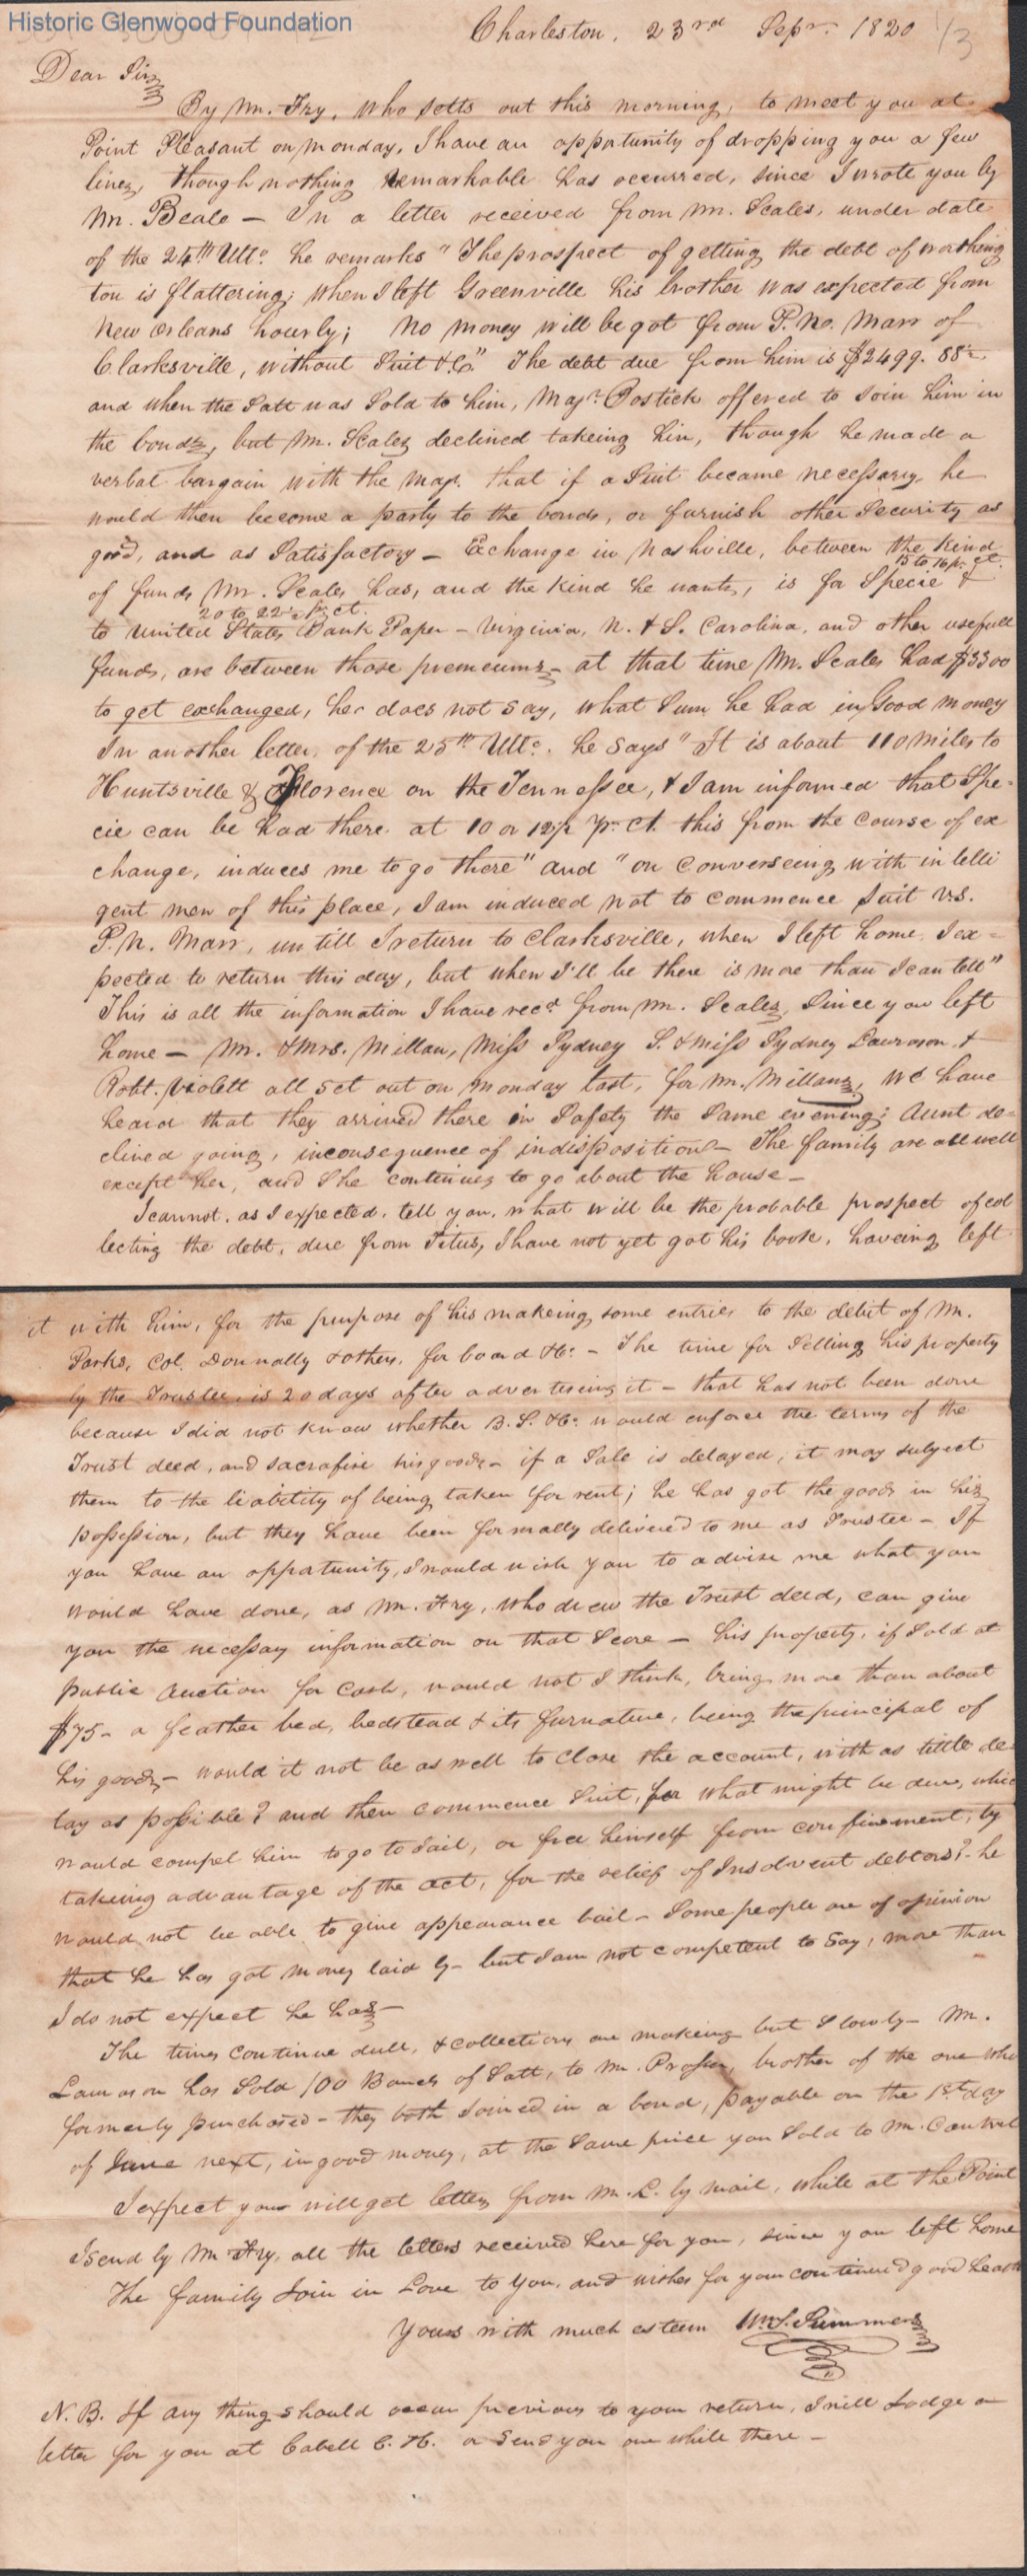 Historic Glenwood Foundation
Charleston, 23rd Sepr. 1820 1/3
Dear Sir,
By Mr. Fry, who setts out this morning, to meet you at
Point Pleasant on monday, I have an oppotunity of dropping you a few
lines, though nothing remarkable has occurred, since I wrote you by
Mr. Beale — In a letter received from Mr. Scales, under date
of the 24th Ulto. he remarks "The prospect of getting the debt of worthing
ton is flattering; when I left Greenville his brother was expected from
New orleans hourly; No money will be got from P. No. Marr of
Clarksville, without Suit &C." The debt due from him is $2499.88
and when the Salt was Sold to him, Majr. Bostick offered to Join him in
the bonds, but Mr. Scales declined takeing him, though he made a
verbal bargain with the Majr. that if a Suit became necessary he
would then become a party to the bonds, or furnish other Security as
good, and as Satisfactory — Exchange in Nashville, between the kind
of funds Mr. Scales has, and the kind he wants, is for Specie 15 to 16 pr. ct. &
to United States Bank Paper 20 to 22 pr ct. — Virginia, N. & S. Carolina, and other usefull
funds, are between those premeums — at that time Mr. Scales had $3300
to get exchanged, he does not say, what Sum he had in Good money
In another letter, of the 25th Ulto. he says "It is about 110 miles to
Huntsville & Florence on the Tennessee, & I am informed that Spe-
cie can be had there at 10 or 12 pr. Ct. this from the course of ex
change, induces me to go there" and "on converseing with intelli
gent men of this place, I am induced not to commence Suit vs.
P. N. Marr, untill I return to Clarksville, when I left home, I ex-
pected to return this day, but when I'll be there is more than I can tell"
This is all the information I have recd. from Mr. Scales, Since you left
home — Mr. & Mrs. Millan, Miss Sydney S. & miss Sydney Lawrason &
Robt. Violett all set out on Monday last, for Mr. Millans, we have
heard that they arrived there in Safety the Same evening; Aunt de-
clined going, inconsequence of indisposition — The family are all well
except her, and She continues to go about the house —
I cannot, as I expected, tell you, what will be the probable prospect of col
lecting the debt, due from Titus, I have not yet got his book, haveing left
it with him, for the purpose of his makeing some entries to the debit of Mr.
Parks, Col. Donnally & others, for board &c. — The time for Selling his property
by the Trustee, is 20 days after advertiseing it — that has not been done
because I did not know whether B. S. &Co. would enforce the terms of the
Trust deed, and sacrafise his goods — if a Sale is delayed, it may subject
them to the liability of being taken for rent; he has got the goods in his
possession, but they have been formally delivered to me as Trustee — If
you have an oppotunity, I would wish you to advise me what you
would have done, as Mr. Fry, who drew the Trust deed, can give
you the necessay information on that Score — his property, if Sold at
public auction for Cash, would not I think, bring more than about
$75 — a feather bed, bedstead & its furnature, being the principal of
his goods — would it not be as well to close the account, with as little de
lay as possible? and then commence Suit, for what might be due, whic
would compel him to go to Jail, or free himself from confinement, by
takeing advantage of the act, for the relief of Insolvent debtors? — he
would not be able to give appearance bail — Some people are of opinion
that he has got money laid by — but I am not competent to Say, more than
I do not expect he has —
The times continue dull, & collections are makeing but Slowly — Mr.
Lawrason has Sold 100 Barrels of Salt, to Mr. Prosser, brother of the one who
formerly purchased — they both Joined in a bond, payable on the 1st. day
of June next, in good money, at the Same price you Sold to Mr. Cantrel
I expect you will get letters from Mr. L. by mail, while at the Point
I send by Mr. Fry, all the letters received here for you, since you left home
The family Join in Love to You, and wishes for your continued good health
Yours with much esteem Wm. S. Summers
N. B. If any thing should occur previous to your return, I will Lodge a
letter for you at Cabell C. H. or Send you one while there —